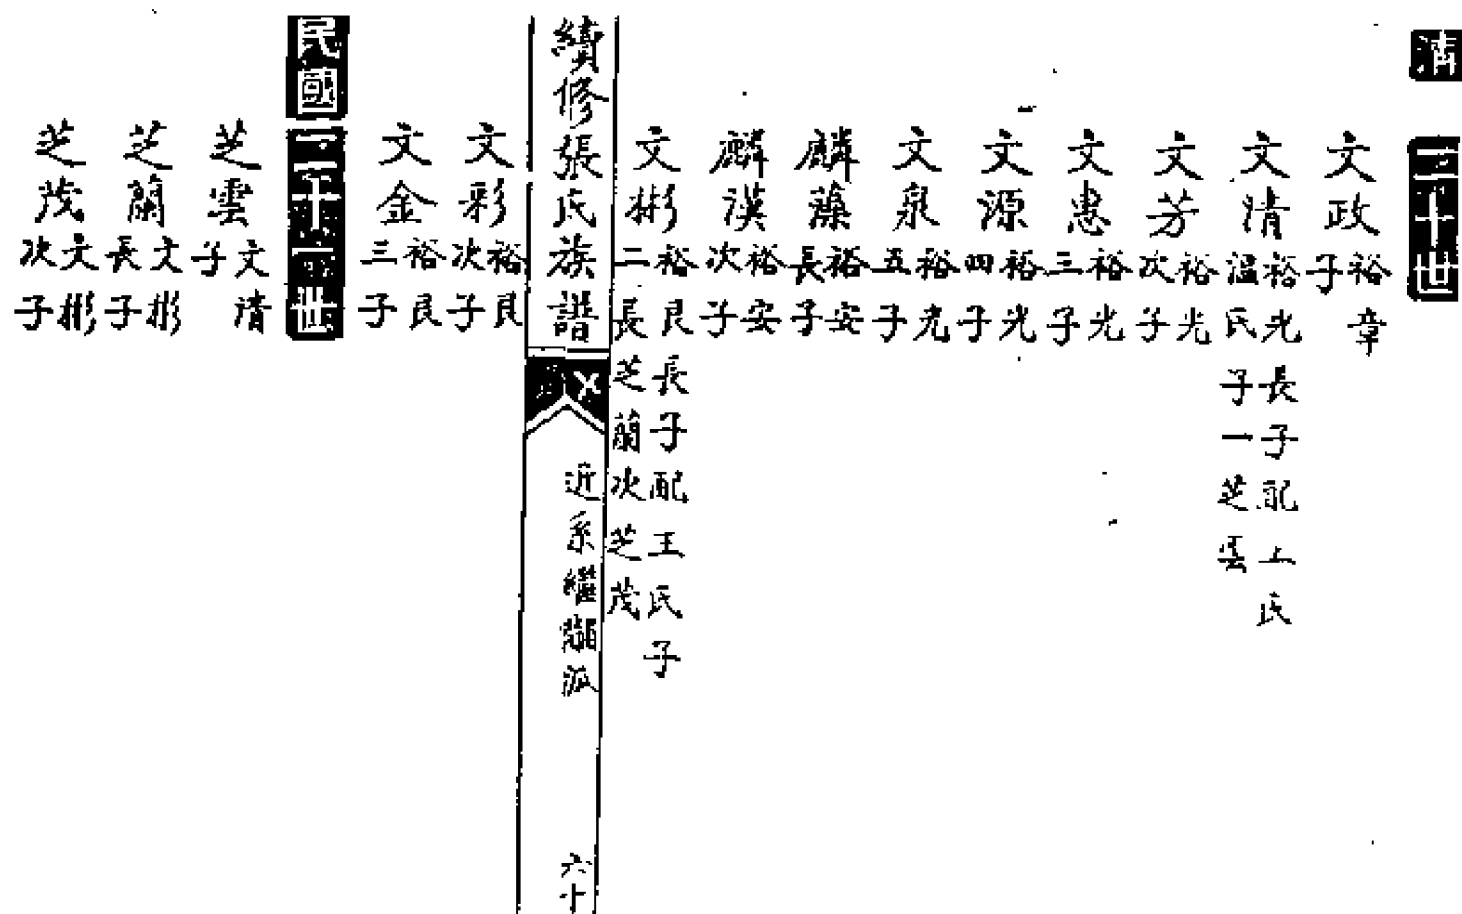 清 二十世
文政 裕章子
文清 裕光長子配王氏溫氏子一芝雲
文芳 裕光次子
文惠 裕光三子
文源 裕光四子
文泉 裕光五子
麟藻 裕安長子
麟漢 裕安次子
文彬 裕良長子配王氏子二長芝蘭次芝茂
續修張氏族譜
近系繼
派
六十
文彩 裕良次子
文金 裕良三子
民國 二十一世
芝雲 文清子
芝蘭 文彬長子
芝茂 文彬次子